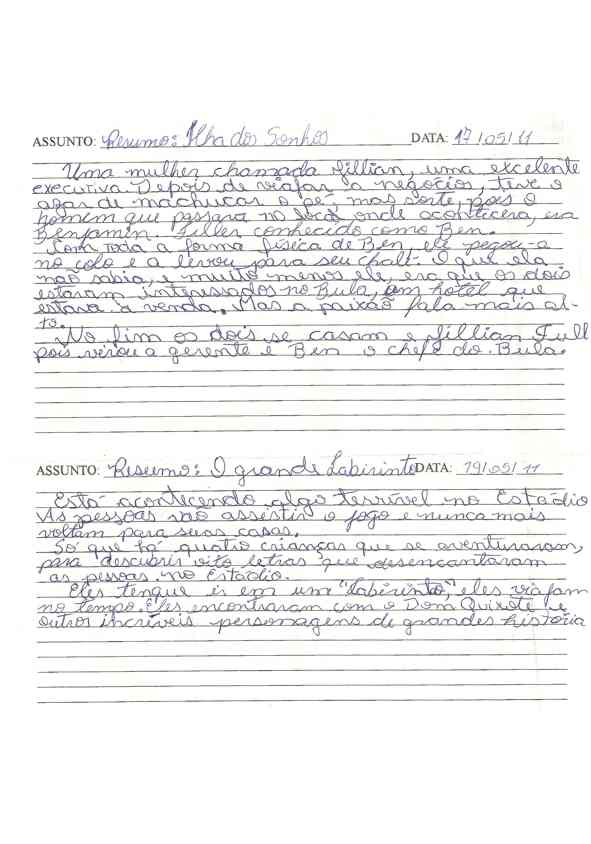 ASSUNTO: Resumo: Ilha dos Sonhos DATA: 17/05/11
Uma mulher chamada Jillian, uma excelente
executiva. Depois de viajar a negócios, teve o
azar de machucar o pé, mas sorte, pois o
homem que passava no local onde acontecera, era
Benjamin. Fuller conhecido como Ben.
Com toda a forma física de Ben, ele pegou-a
no colo e a levou para seu chalé. O que ela
não sabia, e muito menos ele, era que os dois
estavam interessados no Bula, um hotel que
estava à venda. Mas a paixão fala mais al-
to.
No fim os dois se casam e Jillian Full
pois virou a gerente e Ben o chefe do Bula.
ASSUNTO: Resumo: O grande Labirinto DATA: 19/05/11
Está acontecendo algo terrível no Estádio
As pessoas vão assistir o jogo e nunca mais
voltam para suas casas.
Só que há quatro crianças que se aventuraram,
para descubrir oito letras que desencantaram
as pessoas no Estádio.
Eles tenque ir em um "labirinto", eles viajam
no tempo. Eles encontraram com o Dom Quixote e
outros incríveis personagens de grandes história